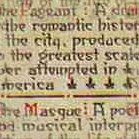 he Pageant: A dra
the romantic histor
the city, produced
the greatest scale
per attempted in
merica
he Masque: A po
nd musical inter